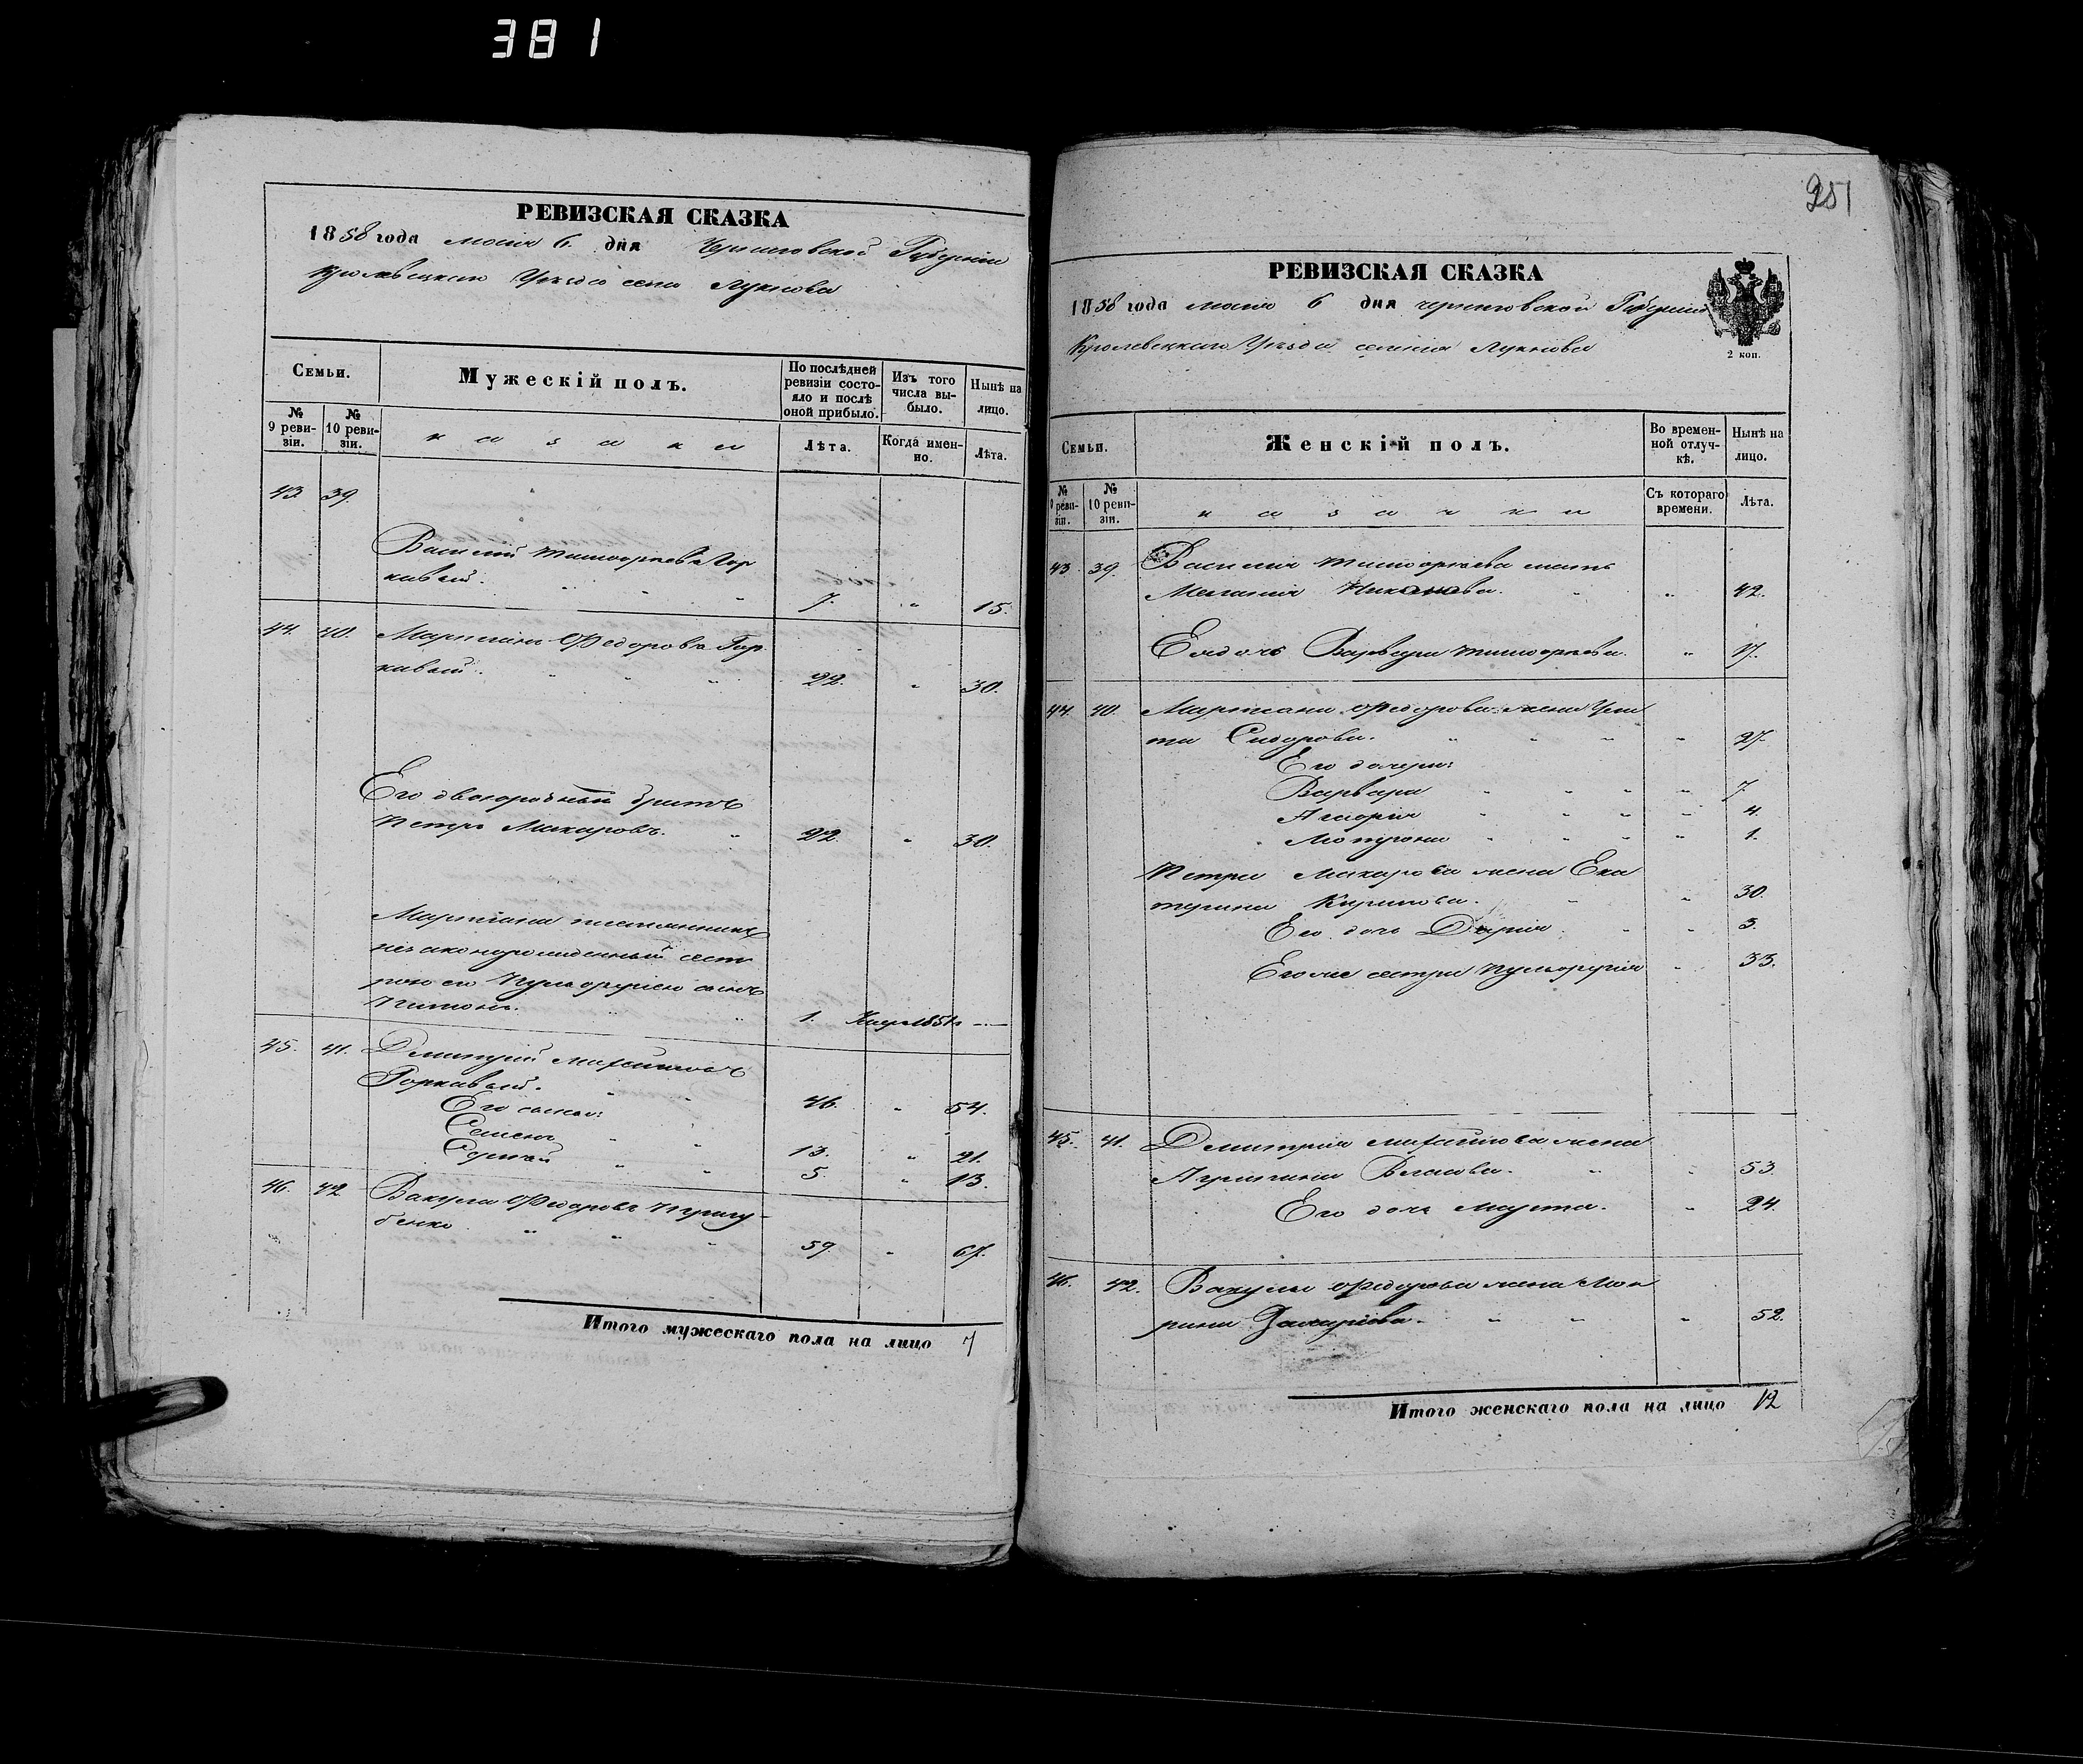 381
РЕВИЗСКАЯ СКАЗКА
1858 года мая 6 дня Черниговской Губернии
Кролевецкаго Уезда села Лукнова
Семьи.
Мужескій полъ.
По послѣдней ревизіи состояло и послѣ оной прибыло.
Изъ того числа выбыло.
Нынѣ на лицо.
№ 9 ревизіи.
№ 10 ревизіи.
казаки
Лѣта.
Когда именно.
Лѣта.
43. 39.
Василий Тимофеевъ Гор
кавый. 7. " 15.
44. 40. Мартинъ Федоровъ Гор
кавый. 22. " 30.
Его двоюродный братъ
Петръ Макаровъ. 22. " 30.
племянникъ
незаконорожденный сест
рою его сынъ
1. 1851
45. 41. Дмитрий Михайловъ
Горкавый. 46. " 54.
Его сыны:
Семенъ 13. " 21.
Сергѣй 5. " 13.
46. 42 Вакула Федоровъ
бенко 59. " 67.
Итого мужескаго пола на лицо 7
251
РЕВИЗСКАЯ СКАЗКА
1858 года мая 6 дня Черниговской Губернии
Кролевецкаго Уезда селения Лукнова
2 коп.
Семьи.
Женскій полъ.
Во временной отлучкѣ.
Нынѣ на лицо.
№ 9 ревизіи.
№ 10 ревизіи.
казачки
Съ котораго времени.
Лѣта.
43. 39. Василия Тимофеева мать
Мелания " 42.
Его дочь Варвара Тимофеева. " 17.
44. 40. Федорова жена Ули
та Сидорова. " 27.
Его дочери:
Варвара " 7.
" 4.
" 1.
Петра Макарова жена Ека
терина Кирилова. " 30.
Его дочь Дария. " 3.
Его же сестра " 33.
45. 41. Дмитрия Михайлова жена
Власова. " 53.
Его дочь Марта. " 24.
46. 42. Вакулы Федорова жена
Захариева. " 52.
Итого женскаго пола на лицо 12